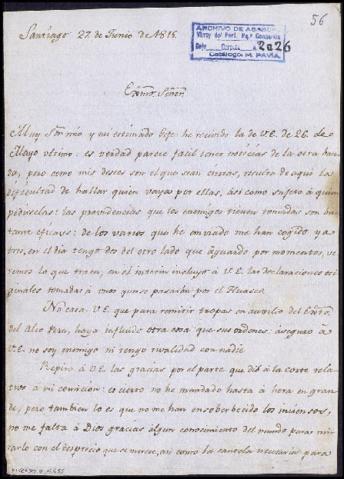 56
Santiago 27 de Junio de 1815.
ARCHIVO DE ABASCAL
2026
Catálogo: M. PAVIA
Exmo. Señor
Muy Señor mio y mi estimado Gefe: he recivido la de V.E. de 26 de
Mayo ultimo: es verdad parece facil tener noticias de la otra ban
da, pero como mis deseos son el que sean ciertas, resulta de aqui la
dificultad de hallar quien vaya por ellas, asi como sujeto á quien
pedirselas: las providencias que los enemigos tienen tomadas son bas
tante eficaces: de los varios que he enviado me han cogido ya
tres, en el dia tengo dos del otro lado que aguardo por momentos, ve
remos lo que traen, en el interin incluyo á V.E. las declaraciones ori
ginales tomadas á unos que se pasaron por el Huasco
No crea V.E. que para remitir tropas en auxilio del Exto.
del Alto Perú, haya influido otra cosa que sus ordenes: aseguro á
V.E. no soy enemigo ni tengo rivalidad con nadie
Repito á V.E. las gracias por el parte que dió á la corte rela
tivo á mi comicion: es cierto no he mandado hasta á hora en gran
de, pero tambien lo es que no me han ensobervecido los
no me falta á Dios gracias algun conocimiento del mundo para mi
rarlo con el desprecio que se merece, asi como la cautela necesaria para